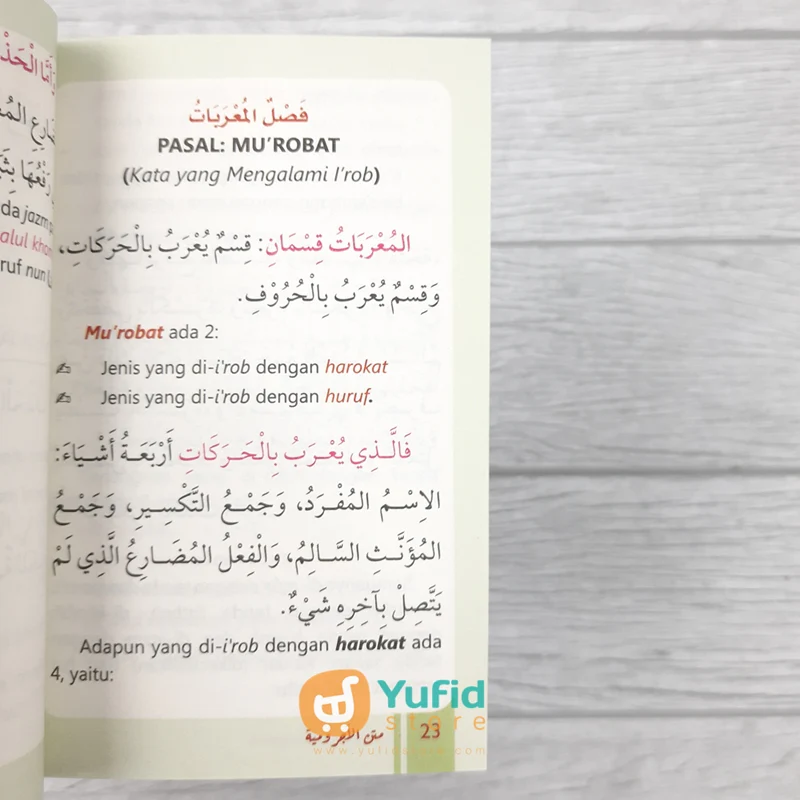 فَصْلٌ الْمُعْرَبَاتُ
PASAL: MU'ROBAT
(Kata yang Mengalami I'rob)
الْمُعْرَبَاتُ قِسْمَانِ: قِسْمٌ يُعْرَبُ بِالْحَرَكَاتِ،
وَقِسْمٌ يُعْرَبُ بِالْحُرُوْفِ.
Mu'robat ada 2:
Jenis yang di-i'rob dengan harokat
Jenis yang di-i'rob dengan huruf.
فَالَّذِي يُعْرَبُ بِالْحَرَكَاتِ أَرْبَعَةُ أَشْيَاءَ:
الِاسْمُ الْمُفْرَدُ، وَجَمْعُ التَّكْسِيرِ، وَجَمْعُ
الْمُؤَنَّثِ السَّالِمُ، وَالْفِعْلُ الْمُضَارِعُ الَّذِي لَمْ
يَتَّصِلْ بِآخِرِهِ شَيْءٌ.
Adapun yang di-i'rob dengan harokat ada
4, yaitu:
Yufid
store
www.yufidstore.com
متن الآجرومية 23